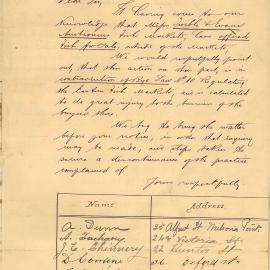 Dear Sir,
It having come to our
knowledge that Messrs Tubb & Evans
Auctioneers Fish Markets, have offered
fish for sale, outside of the Markets,
We would respectfully point
out that this action on their part, is in
contravention of Bye Law No 10 Regulating
the Eastern Fish Markets, and is calculated
to do great injury to the business of the
buyers there.
We beg to bring the matter
before your notice, in order that inquiry
may be made, and steps taken to
secure a discontinuance of the practice
complained of
Yours respectfully
Name Address
A. Dunn 35 Alfred St Milsons Point
Zachary 248 Victoria St
J. E. Chinnery 22 Hunter St
36 Oxford St